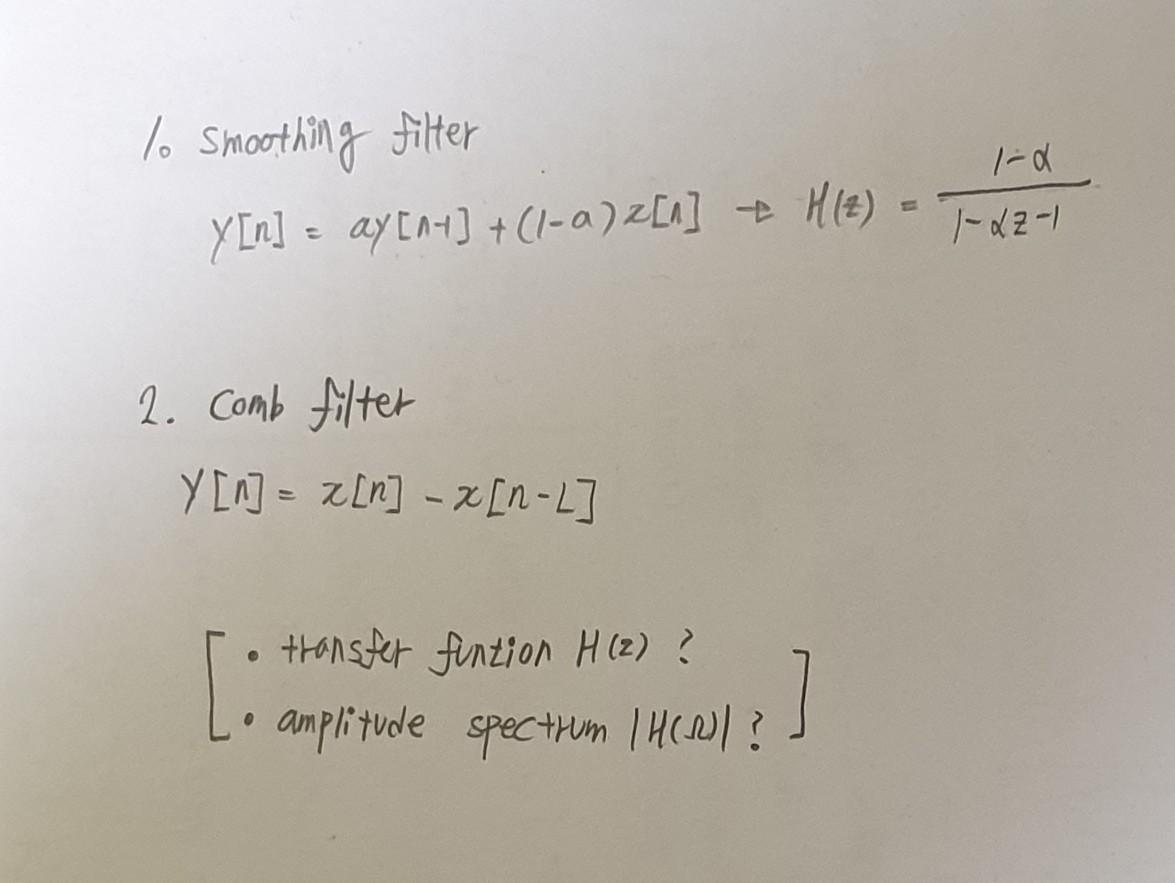 1. Smoothing filter
y[n] = ay[n-1] + (1-a)x[n] → H(z) = (1-α)/(1-αz-1)
2. Comb filter
y[n] = x[n] - x[n-L]
[ • transfer funtion H(z) ?
• amplitude spectrum |H(Ω)| ? ]